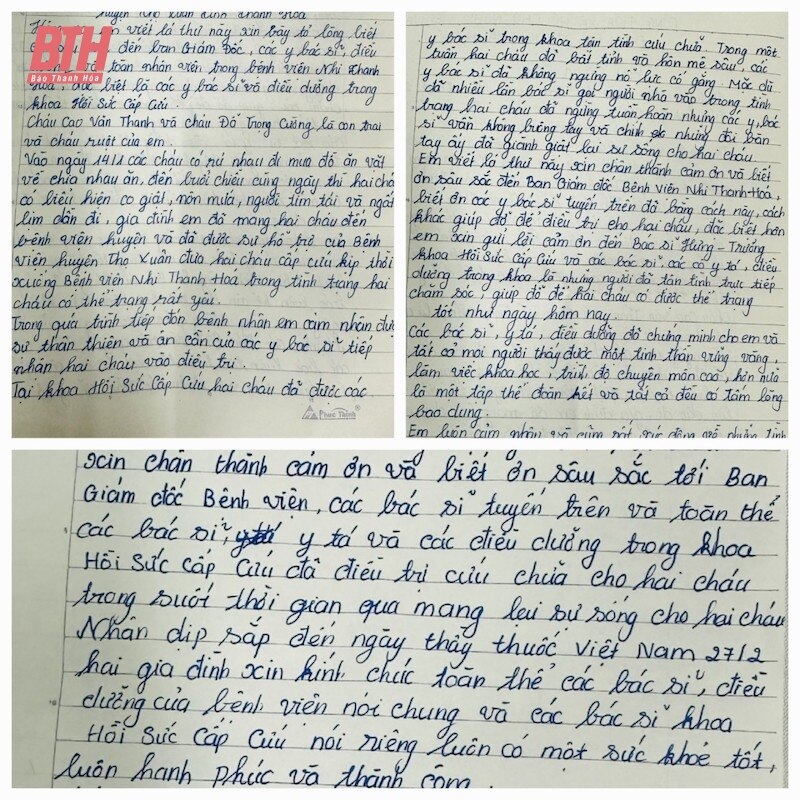 huyện Thọ Xuân tỉnh Thanh Hoá
BTH
Báo Thanh Hóa
viết lá thư này xin bày tỏ lòng biết
đến ban Giám Đốc, các y bác sĩ, điều
và toàn nhân viên trong bệnh viện Nhi Thanh
Hoá, đặc biệt là các y bác sĩ và điều dưỡng trong
khoa Hồi Sức Cấp Cứu.
Cháu Cao Văn Thanh và cháu Đỗ Trọng Cường là con trai
và cháu ruột của em.
Vào ngày 14/1 các cháu có rủ nhau đi mua đồ ăn vặt
về chia nhau ăn, đến buổi chiều cùng ngày thì hai cháu
có biểu hiện co giật, nôn mửa, người tím tái và ngất
lịm dần đi, gia đình em đã mang hai cháu đến
bệnh viện huyện và đã được sự hỗ trợ của Bệnh
viện huyện Thọ Xuân đưa hai cháu cấp cứu kịp thời
xuống Bệnh viện Nhi Thanh Hoá trong tình trạng hai
cháu có thể trạng rất yếu.
Trong quá trình tiếp đón bệnh nhân em cảm nhận được
sự thân thiện và ân cần của các y bác sĩ tiếp
nhận hai cháu vào điều trị.
Tại khoa Hồi Sức Cấp Cứu hai cháu đã được các
Phúc Thịnh
y bác sĩ trong khoa tận tình cứu chữa. Trong một
tuần hai cháu đã bất tỉnh và hôn mê sâu, các
y bác sĩ đã không ngừng nỗ lực cố gắng. Mặc dù
đã nhiều lần bác sĩ gọi người nhà vào trong tình
trạng hai cháu đã ngừng tuần hoàn nhưng các y, bác
sĩ vẫn không buông tay và chính nhưng đôi bàn
tay ấy đã giành giật lại sự sống cho hai cháu.
Em viết lá thư này xin chân thành cảm ơn và biết
ơn sâu sắc đến Ban Giám đốc Bệnh Viện Nhi Thanh Hoá,
biết ơn các y bác sĩ tuyến trên đã bằng cách này, cách
khác giúp đỡ để điều trị cho hai cháu, đặc biệt hơn
em xin gửi lời cảm ơn đến Bác sĩ Hưng - Trưởng
khoa Hồi Sức Cấp Cứu và các bác sĩ, các cô y tá, điều
dưỡng trong khoa là những người đã tận tình trực tiếp
chăm sóc, giúp đỡ để hai cháu có được thể trạng
tốt như ngày hôm nay.
Các bác sĩ, y tá, điều dưỡng đã chứng minh cho em và
tất cả mọi người thấy được một tinh thần vững vàng,
làm việc khoa học, trình độ chuyên môn cao, hơn nữa
là một tập thể đoàn kết và tất cả đều có tấm lòng
bao dung.
Em luôn cảm nhận và cũng rất xúc động về những tình
xin chân thành cảm ơn và biết ơn sâu sắc tới Ban
Giám đốc Bệnh viện, các bác sĩ tuyến trên và toàn thể
các bác sĩ, y tá và các điều dưỡng trong khoa
Hồi Sức Cấp Cứu đã điều trị cứu chữa cho hai cháu
trong suốt thời gian qua mang lại sự sống cho hai cháu
Nhân dịp sắp đến ngày thầy thuốc Việt Nam 27/2
hai gia đình xin kính chúc toàn thể các bác sĩ, điều
dưỡng của bệnh viện nói chung và các bác sĩ khoa
Hồi Sức Cấp Cứu nói riêng luôn có một sức khoẻ tốt,
luôn hạnh phúc và thành công.